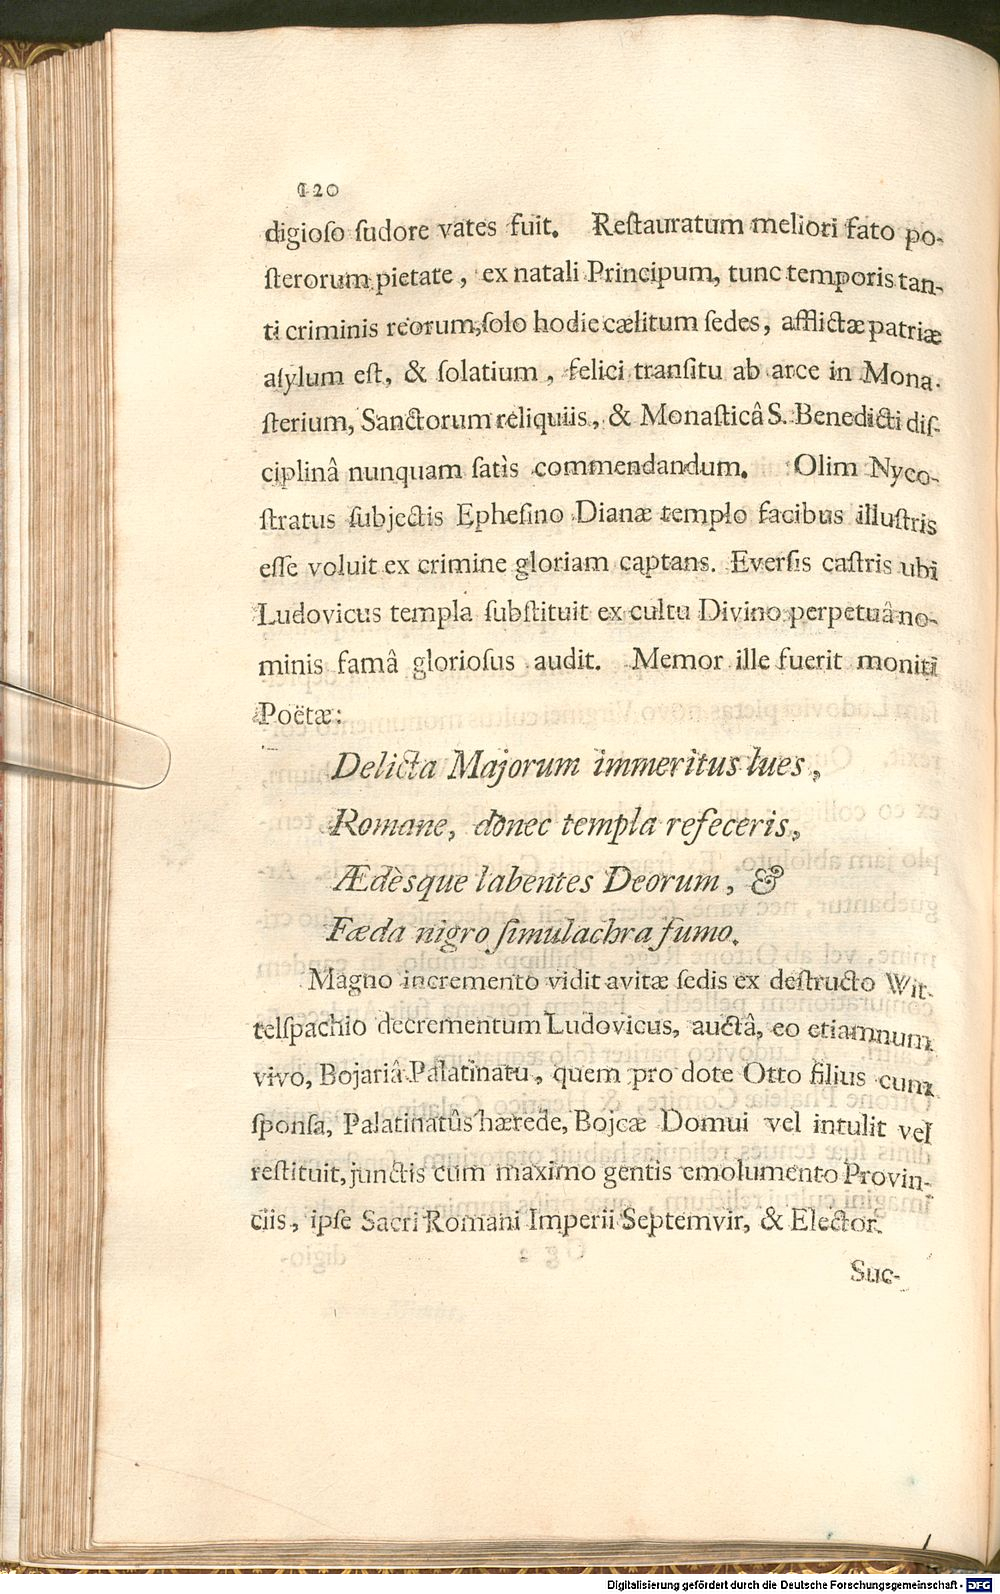 120
digioſo ſudore vates fuit. Reſtauratum meliori fato po-
ſterorum pietate, ex natali Principum, tunc temporis tan-
ti criminis reorum, ſolo hodie cælitum ſedes, afflictæ patriæ
aſylum eſt, & ſolatium, felici tranſitu ab arce in Mona-
ſterium, Sanctorum reliquiis, & Monaſticâ S. Benedicti diſ-
ciplinâ nunquam ſatìs commendandum. Olim Nyco-
ſtratus ſubjectis Epheſino Dianæ templo facibus illuſtris
eſſe voluit ex crimine gloriam captans. Everſis caſtris ubi
Ludovicus templa ſubſtituit ex cultu Divino perpetuâ no-
minis famâ glorioſus audit. Memor ille fuerit moniti
Poëtæ:
Delicta Majorum immeritus lues,
Romane, donec templa refeceris,
Ædèsque labentes Deorum, &
Fæda nigro ſimulachra fumo.
Magno incremento vidit avitæ ſedis ex deſtructo Wit-
telſpachio decrementum Ludovicus, auctâ, eo etiamnum
vivo, Bojariâ Palatinatu, quem pro dote Otto filius cum
ſponſa, Palatinatûs hærede, Bojcæ Domui vel intulit vel
reſtituit, junctis cum maximo gentis emolumento Provin-
ciis, ipſe Sacri Romani Imperii Septemvir, & Elector.
Suc-
Digitalisierung gefördert durch die Deutsche Forschungsgemeinschaft - DFG